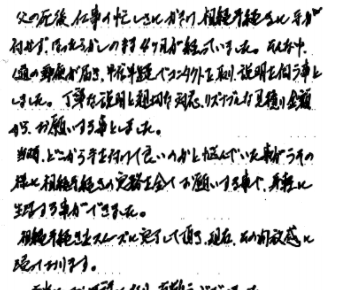 父の死後、仕事の忙しさにかまけ、相続手続きに手が
付せず、ほったらかしのまま4ヶ月が経っていました。そんな中、
1通の郵便が届き、半信半疑でコンタクトを取り、説明を伺う事と
しました。丁寧な説明と親切な対応、リーズナブルな見積り金額
から、お願いする事としました。
当時、どこから手を付けて良いのかと悩んでいた事がうその
様に相続手続きの実務を全てお願いする事で、身軽に
生活する事ができました。
相続手続きもスムーズに完了して頂き、現在、その開放感に
浸っております。